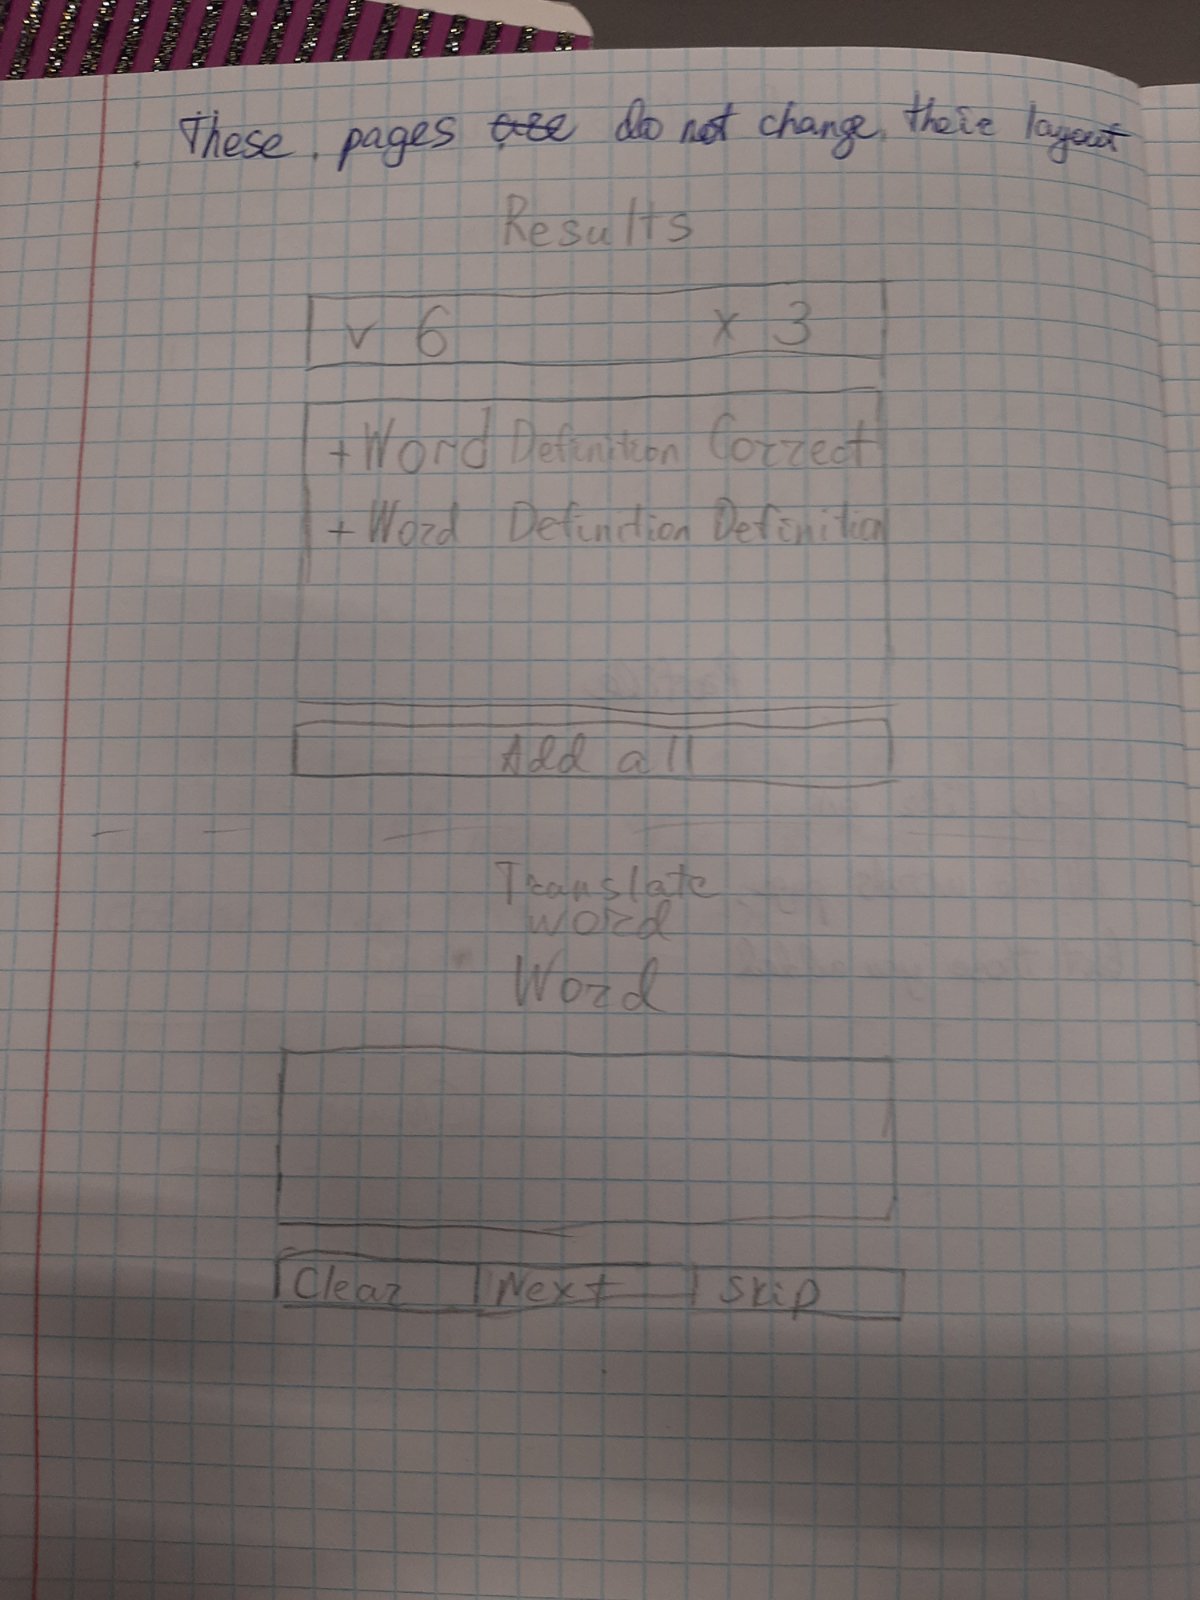 These pages are do not change their layout
Results
v 6 x 3
+ Word Definition Correct
+ Word Definition Definition
Add all
Translate
word
Word
Clear Next Skip